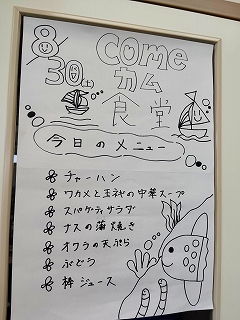 8/30(土)
come
カム
食堂
今日のメニュー
チャーハン
ワカメと玉ねぎの中華スープ
スパゲティサラダ
ナスの蒲焼き
オクラの天ぷら
ぶどう
枠ジュース